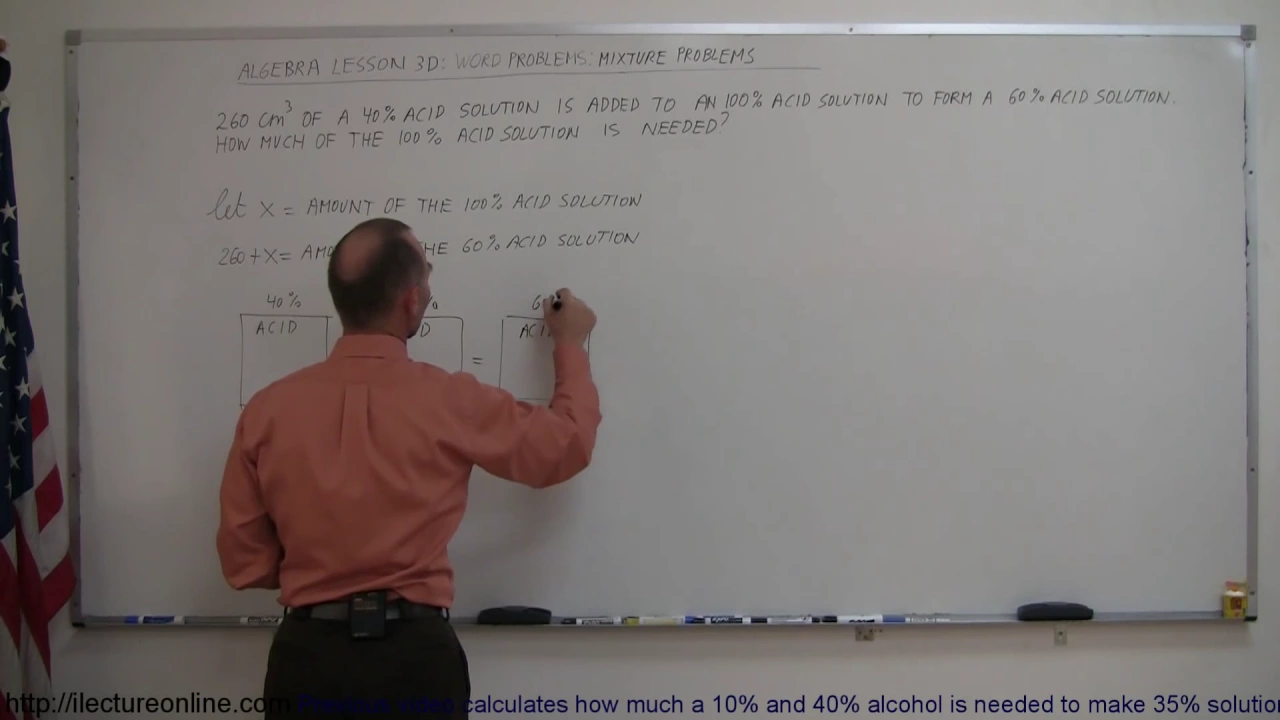 ALGEBRA LESSON 3D: WORD PROBLEMS: MIXTURE PROBLEMS
260 cm³ OF A 40% ACID SOLUTION IS ADDED TO AN 100% ACID SOLUTION TO FORM A 60% ACID SOLUTION.
HOW MUCH OF THE 100% ACID SOLUTION IS NEEDED?
let X = AMOUNT OF THE 100% ACID SOLUTION
260 + X = THE 60% ACID SOLUTION
40%
ACID =
http://ilectureonline.com Previous video calculates how much a 10% and 40% alcohol is needed to make 35% solutio